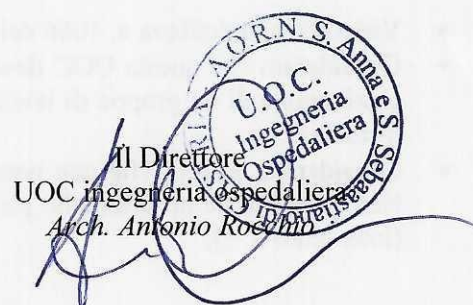 A.O.R.N. S. Anna e S. Sebastiano di C
U.O.C.
Ingegneria
Ospedaliera
Il Direttore
UOC ingegneria ospedaliera
Arch. Antonio Rocchio